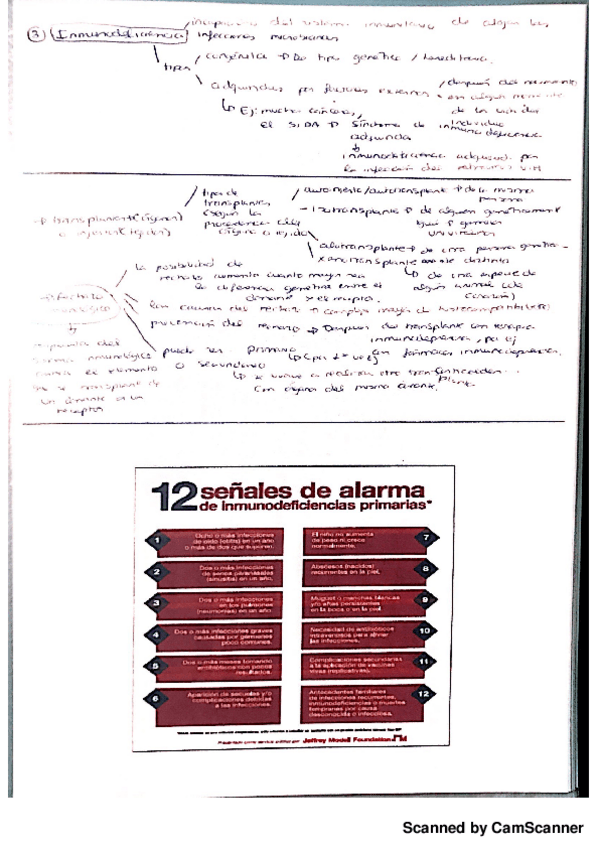 ③ Inmunodeficiencia / incapacidad del sistema inmunitario de
infecciones microbianas
tipos
congénita → De tipo genético / hereditaria.
adquiridas por factores externos / después del nacimiento
en algún momento
de la vida del
individuo
↳ Ej: muchos cánceres,
el SIDA → Síndrome de inmunodeficiencia
adquirida
inmunodeficiencia adquirida por
la infección del retrovirus VIH
→ transplante (órganos)
o injerto (tejidos)
tipos de
transplantes
según la
procedencia del
órgano o tejido
autoinjerto/autotransplante → de la misma
persona
- Isotransplante → de alguien genéticamente
igual → gemelos
univitelinos
alotransplante → de otra persona genética-
mente distinta
xenotransplante
↳ de una especie de
algún animal
la posibilidad de
rechazo aumenta cuanto mayor sea
la diferencia genética entre el
donante y el
→ rechazo
inmunológico
las causas del rechazo → complejo mayor de histocompatibilidad
prevención del rechazo → Después del transplante con terapia
inmunodepresora, por ej
con fármacos inmunodepresores.
respuesta del
sistema inmunológico
contra el elemento
que se transplanta de
un donante a un
receptor
puede ser primario
o secundario
↳ se vuelve a realizar otro transplante
con órgano del mismo donante.
12 señales de alarma
de inmunodeficiencias primarias*
1
Ocho o más infecciones
de oído (otitis) en un año
o más de dos que supuren.
2
Dos o más infecciones
de senos paranasales
(sinusitis) en un año.
3
Dos o más infecciones
en los pulmones
(neumonías) en un año.
4
Dos o más infecciones graves
causadas por gérmenes
poco comunes.
5
Dos o más meses tomando
antibióticos con pocos
resultados.
6
Aparición de secuelas y/o
complicaciones debidas
a las infecciones.
7
El niño no aumenta
de peso ni crece
normalmente.
8
Abscesos (nacidos)
recurrentes en la piel.
9
Muguet o manchas blancas
y/o aftas persistentes
en la boca o en la piel.
10
Necesidad de antibióticos
intravenosos para aliviar
las infecciones.
11
Complicaciones secundarias
a la aplicación de vacunas
vivas (replicativas).
12
Antecedentes familiares
de infecciones recurrentes,
inmunodeficiencias o muertes
tempranas por causa
desconocida o infecciosa.
Presentado como servicio público por: Jeffrey Modell Foundation
Scanned by CamScanner